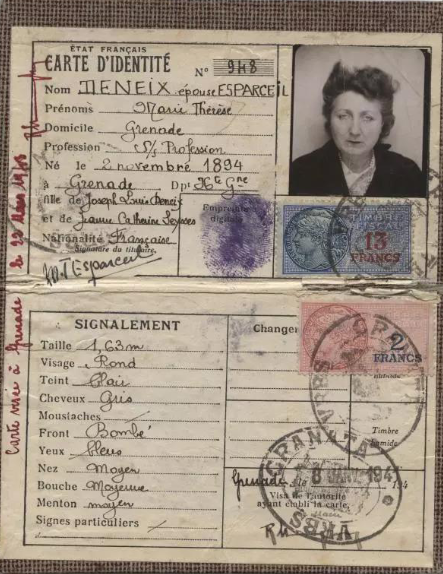 ÉTAT FRANÇAIS
CARTE D'IDENTITÉ
N° 948
Nom DENEIX épouse ESPARCEIL
Prénoms Marie Thérèse
Domicile Grenade
Profession S/ Profession
Né le 2 novembre 1894
à Grenade Dpt Hte Gne
fille de Joseph Louis Deneix
et de Jeanne Catherine
Nationalité Française
Signature du titulaire.
M.T Esparceil
Empreinte digitale
TIMBRE
13
FRANCS
Carte visée à Grenade le
SIGNALEMENT
Taille 1,63m
Visage Rond
Teint Clair
Cheveux Gris
Moustaches
Front Bombé
Yeux Bleus
Nez Moyen
Bouche Moyenne
Menton moyen
Signes particuliers
Changer
2
FRANCS
Timbre
humide
GRANATA
VRBS
Grenade, le 8 JANV 194
Visa de l'autorité
ayant établi la carte,
GRANATA
VRBS